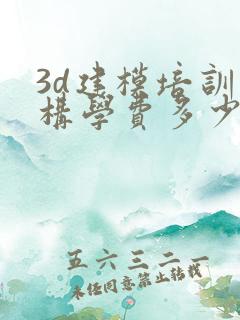 3d建模培訓
構學費多少
五六三二一
未经同意禁止转载